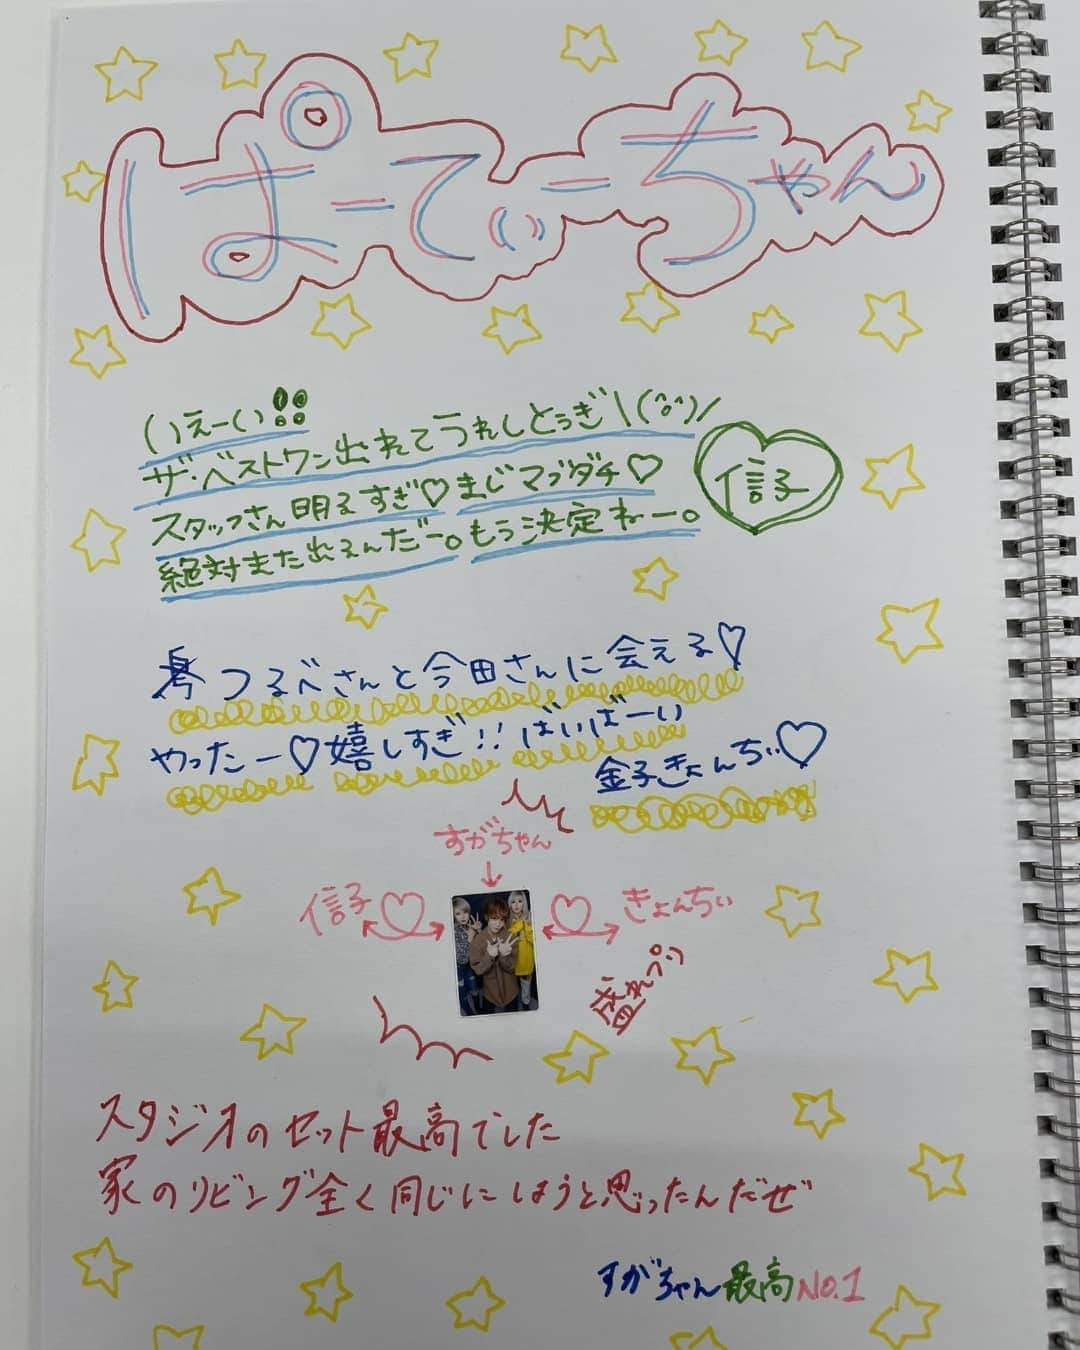 ぱーてぃーちゃん
いえーい!!
ザ・ベストワン出れてうれしとぅぎ\(^^)/
スタッフさん明るすぎ♡まじマブダチ♡
絶対また出るんだー。もう決定ねー。
信子
つるべさんと今田さんに会える♡
やったー♡嬉しすぎ!!ばいばーい
金子きょんちぃ♡
すがちゃん
↓
信子 ♡ ♡ きょんちぃ
盛れプリ
スタジオのセット最高でした
家のリビング全く同じにしようと思ったんだぜ
すがちゃん最高No.1